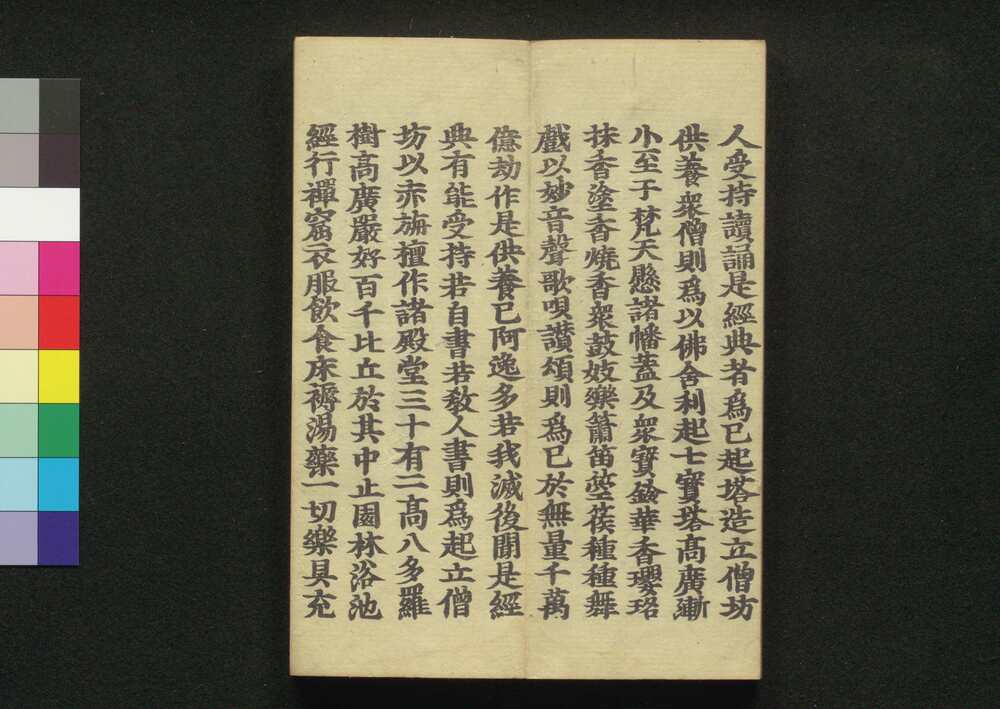 人受持讀誦是經典者爲已起塔造立僧坊
供養衆僧則爲以佛舍利起七寶塔高廣漸
小至于梵天懸諸幡蓋及衆寶鈴華香瓔珞
抹香塗香燒香衆鼓妓樂簫笛箜篌種種舞
戲以妙音聲歌唄讃頌則爲已於無量千萬
億劫作是供養已阿逸多若我滅後聞是經
典有能受持若自書若教人書則爲起立僧
坊以赤旃檀作諸殿堂三十有二高八多羅
樹高廣嚴好百千比丘於其中止園林浴池
經行禪窟衣服飮食床褥湯藥一切樂具充